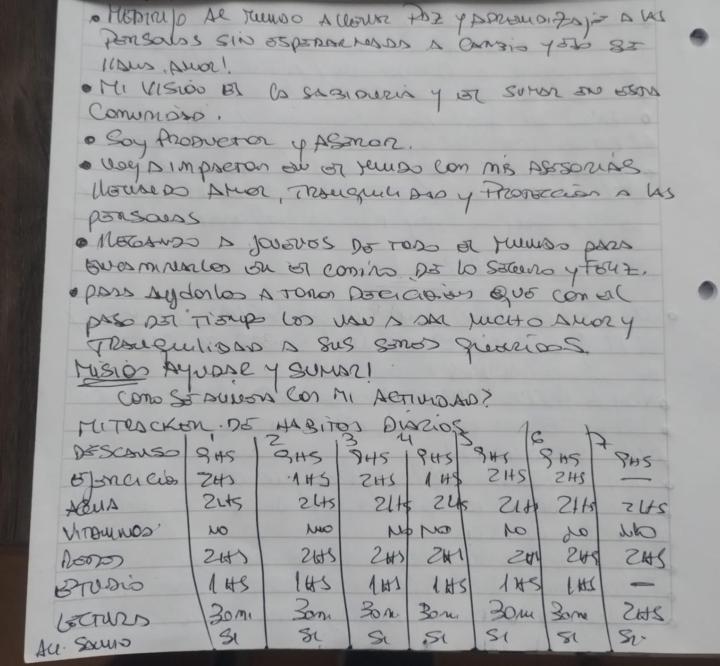 • ME DIRIJO AL MUNDO A LLEVAR PAZ Y APRENDIZAJE A LAS
PERSONAS SIN ESPERAR NADA A CAMBIO Y ESO SE
LLAMA AMOR!
• MI VISIÓN ES LA SABIDURIA Y EL SUMAR EN ESTA
COMUNIDAD.
• SOY PRODUCTOR Y ASESOR.
• VOY A IMPACTAR EN EL MUNDO CON MIS ASESORIAS
LLEVANDO AMOR, TRANQUILIDAD Y PROTECCIÓN A LAS
PERSONAS
• LLEGANDO A JOVENES DE TODO EL MUNDO PARA
EN EL CAMINO DE LO SEGURO Y FELIZ.
• PARA AYUDARLOS A TOMAR DECICIONES QUE CON EL
PASO DEL TIEMPO LES VAN A DAR MUCHO AMOR Y
TRANQUILIDAD A SUS SERES QUERIDOS.
MISIÓN AYUDAR Y SUMAR!
COMO SE CON MI ACTIVIDAD?
MI TRACKER DE HABITOS DIARIOS
1 2 3 4 5 6 7
DESCANSO 9HS 9HS 9HS 9HS 9HS 9HS 9HS
EJERCICIO 2HS 1HS 2HS 1HS 2HS 2HS —
AGUA 2LTS 2LTS 2LTS 2LTS 2LTS 2LTS 2LTS
VITAMINAS NO NO NO NO NO NO NO
2HS 2HS 2HS 2HS 2HS 2HS 2HS
ESTUDIO 1HS 1HS 1HS 1HS 1HS 1HS —
LECTURA 30m 30m 30m 30m 30m 30m 2HS
SI SI SI SI SI SI SI